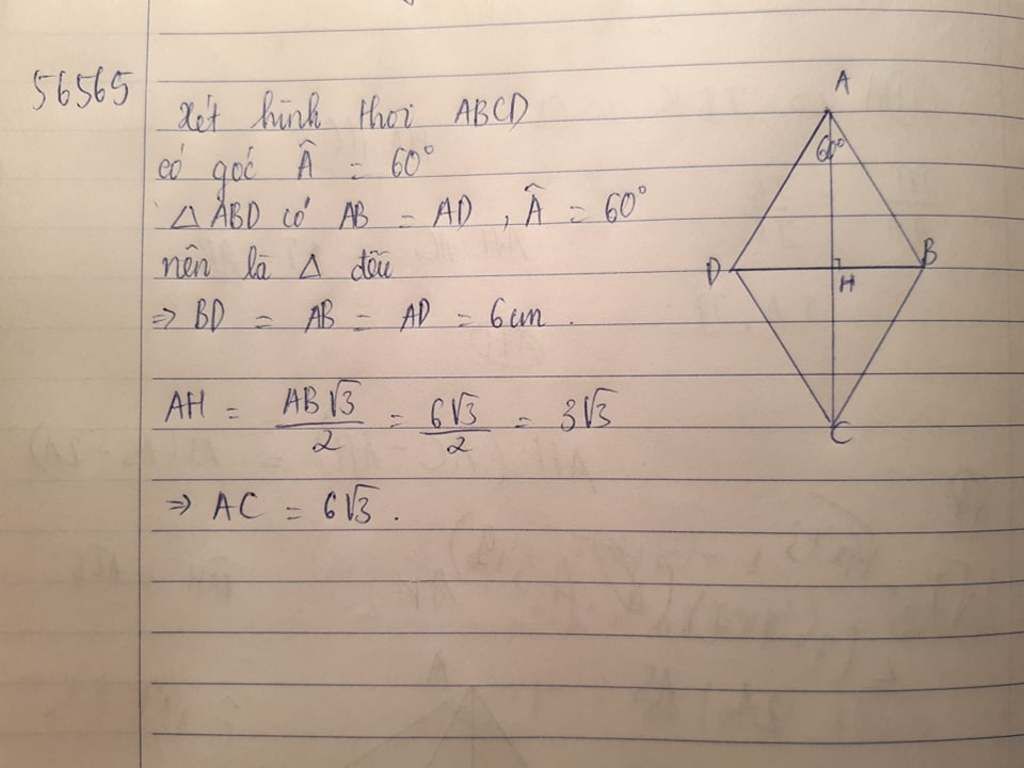 56565
Xét hình thoi ABCD
có góc Â = 60°
△ ABD có AB = AD, Â = 60°
nên là △ đều
⇒ BD = AB = AD = 6cm.
AH = AB√3/2 = 6√3/2 = 3√3
⇒ AC = 6√3.
A
60°
D
B
H
C